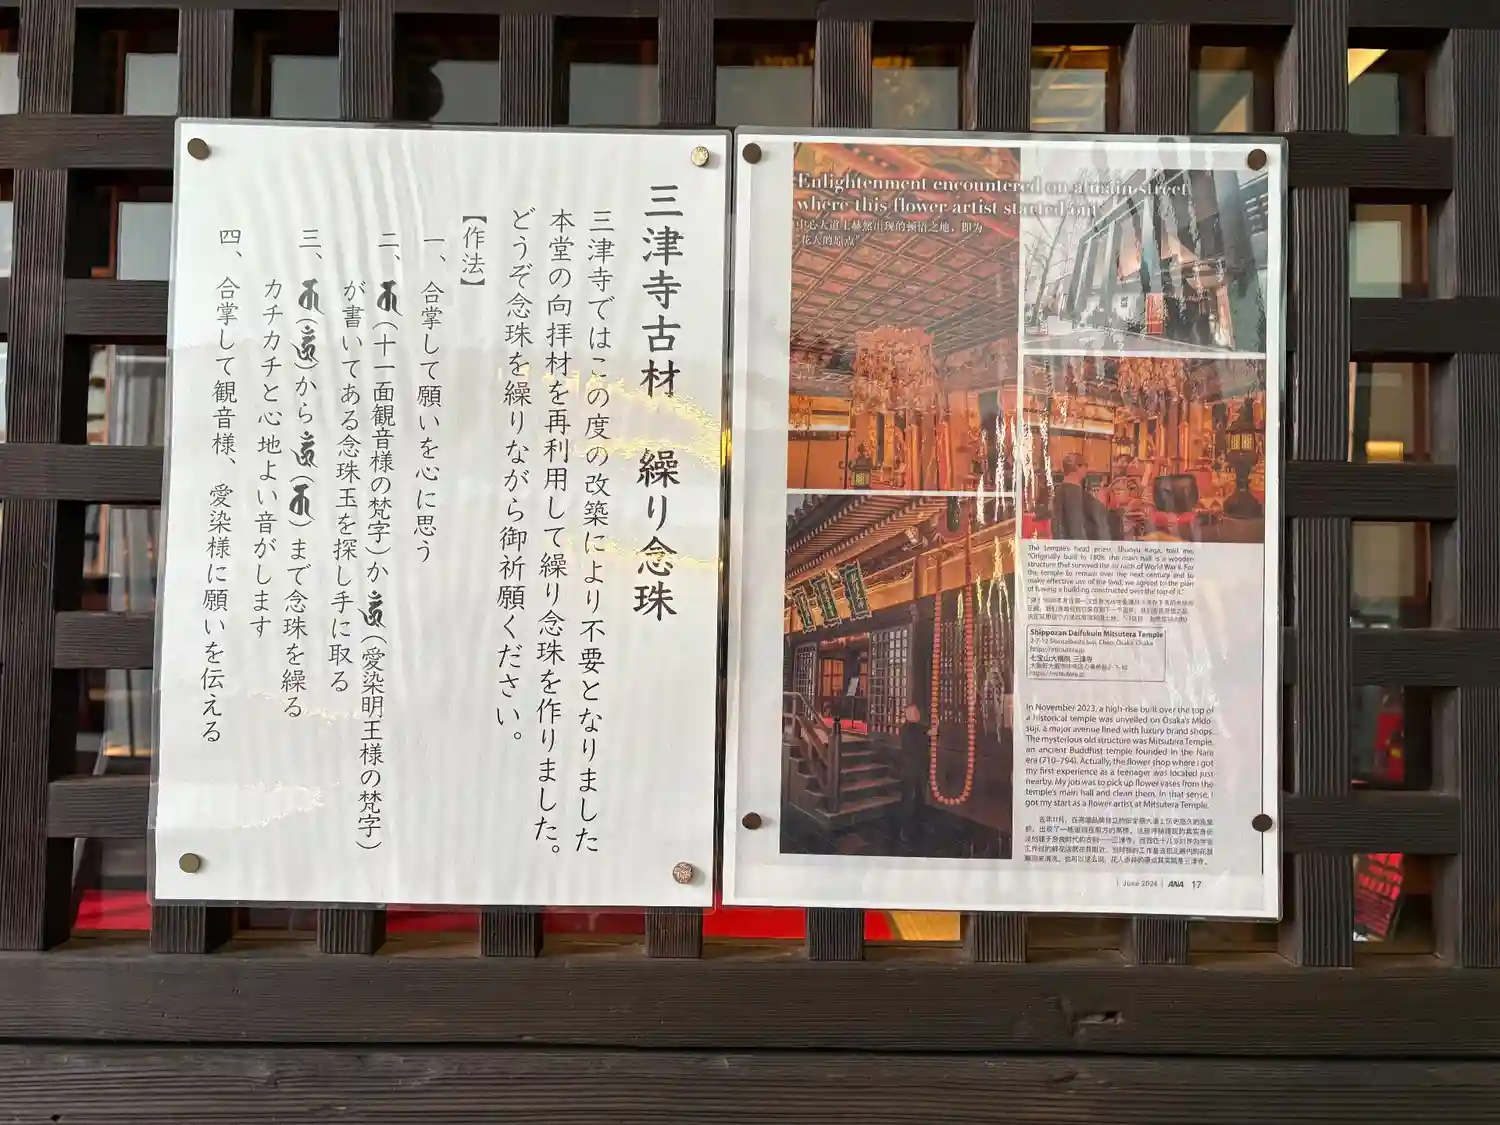 三津寺古材 繰り念珠
三津寺ではこの度の改築により不要となりました
本堂の向拝材を再利用して繰り念珠を作りました。
どうぞ念珠を繰りながら御祈願ください。
【作法】
一、合掌して願いを心に思う
二、(十一面観音様の梵字)か(愛染明王様の梵字)
が書いてある念珠玉を探し手に取る
三、( )から( )まで念珠を繰る
カチカチと心地よい音がします
四、合掌して観音様、愛染様に願いを伝える
Enlightenment encountered on a main street
where this flower artist started out
中心大道上赫然出现的顿悟之地，即为
"花人的原点"
The temple's head priest, Shunyu Kaga, told me,
"Originally built in 1808, the main hall is a wooden
structure that survived the air raids of World War II. For
the temple to remain over the next century and to
make effective use of the land, we agreed to the plan
of having a building constructed over the top of it."
Shippozan Daifukuin Mitsutera Temple
七宝山大福院 三津寺
In November 2023, a high-rise built over the top of
a historical temple was unveiled on Osaka's Mido-
suji, a major avenue lined with luxury brand shops.
The mysterious old structure was Mitsutera Temple,
an ancient Buddhist temple founded in the Nara
era (710–794). Actually, the flower shop where I got
my first experience as a teenager was located just
nearby. My job was to pick up flower vases from the
temple's main hall and clean them. In that sense, I
got my start as a flower artist at Mitsutera Temple.
| June 2024 | ANA 17